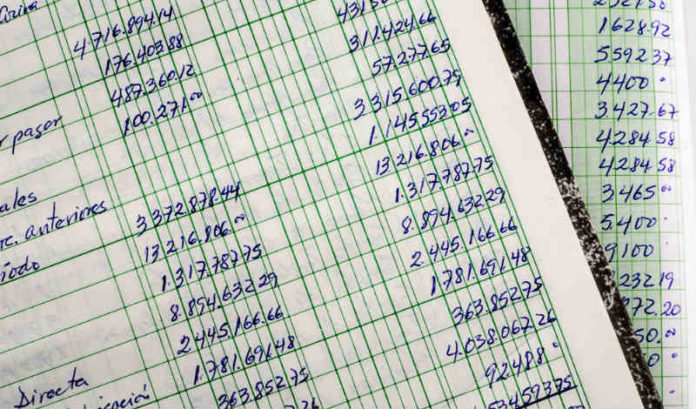 4.716.894.14
176.403.88
311.424.66
487.360.12
57.277.65
r pagar 100.271.00
3.315.600.75
1.145.553.05
ales
ec. anteriores 3.372.878.44 13.216.806.00
íodo 13.216.806.00 1.317.787.75
1.317.787.75 8.894.632.29
8.894.632.29 2.445.166.66
2.445.166.66 1.781.691.48
1.781.691.48 363.852.75
Directa 363.852.75 4.038.067.26
92.488.00
53.459375
1628.92
5592 37
4400
3427.67
4284 58
4284 58
3465 00
5.400
9100
232 19
72.20
50.00